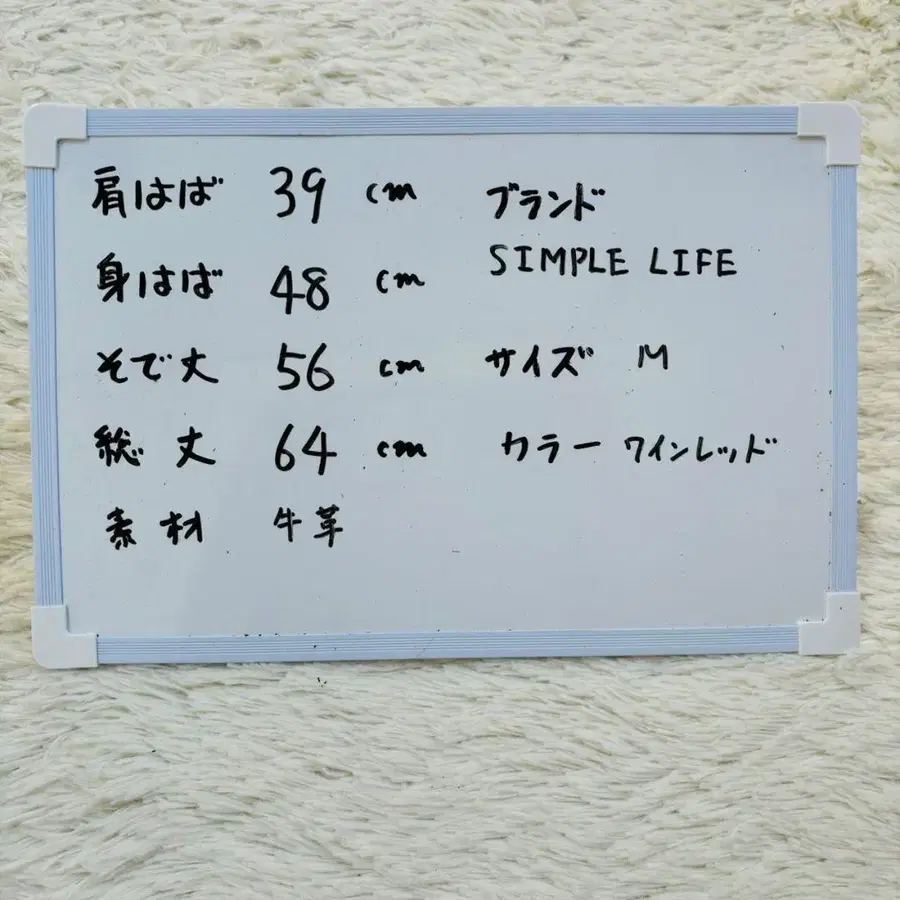 肩はば 39 cm
身はば 48 cm
そで丈 56 cm
総丈 64 cm
素材 牛革
ブランド
SIMPLE LIFE
サイズ M
カラー ワインレッド